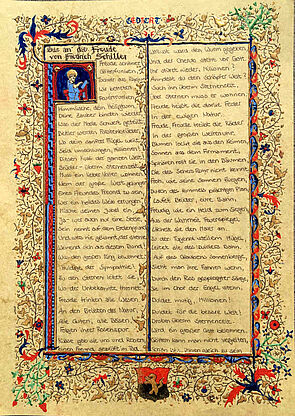 GEDICHT
Ode an die Freude
von Friedrich Schiller
Freude, schöner
Götterfunken,
Tochter aus Elysium,
Wir betreten
feuertrunken,
Himmlische, dein Heiligtum.
Deine Zauber binden wieder,
Was der Mode Schwert geteilt;
Bettler werden Fürstenbrüder,
Wo dein sanfter Flügel weilt.
Seid umschlungen, Millionen!
Diesen Kuß der ganzen Welt!
Brüder - überm Sternenzelt
Muß ein lieber Vater wohnen.
Wem der große Wurf gelungen,
Eines Freundes Freund zu sein,
Wer ein holdes Weib errungen,
Mische seinen Jubel ein!
Ja - wer auch nur eine Seele
Sein nennt auf dem Erdenrund!
Und wer's nie gekonnt, der stehle
Weinend sich aus diesem Bund.
Was den großen Ring bewohnet,
Huldige der Sympathie!
Zu den Sternen leitet sie,
Wo der Unbekannte thronet.
Freude trinken alle Wesen
An den Brüsten der Natur,
Alle Guten, alle Bösen
Folgen ihrer Rosenspur.
Küsse gab sie uns und Reben,
Einen Freund, geprüft im Tod.
Wollust ward dem Wurm gegeben,
Und der Cherub steht vor Gott.
Ihr stürzt nieder, Millionen?
Ahndest du den Schöpfer, Welt?
Such ihn überm Sternenzelt,
Über Sternen muß er wohnen.
Freude heißt die starke Feder
In der ewigen Natur.
Freude, Freude treibt die Räder
In der großen Weltenuhr.
Blumen lockt sie aus den Keimen,
Sonnen aus dem Firmament,
Sphären rollt sie in den Räumen,
Die des Sehers Rohr nicht kennt!
Froh, wie seine Sonnen fliegen,
Durch des Himmels prächtgen Plan,
Laufet, Brüder, eure Bahn,
Freudig wie ein Held zum Siegen.
Aus der Wahrheit Feuerspiegel
Lächelt sie den Forscher an.
Zu der Tugend steilem Hügel
Leitet sie des Dulders Bahn.
Auf des Glaubens Sonnenberge
Sieht man ihre Fahnen wehn,
Durch den Riß gesprengter Särge
Sie im Chor der Engel stehn.
Duldet mutig, Millionen!
Duldet für die beßre Welt!
Droben überm Sternenzelt
Wird ein großer Gott belohnen.
Göttern kann man nicht vergelten,
Schön ists, ihnen gleich zu sein.